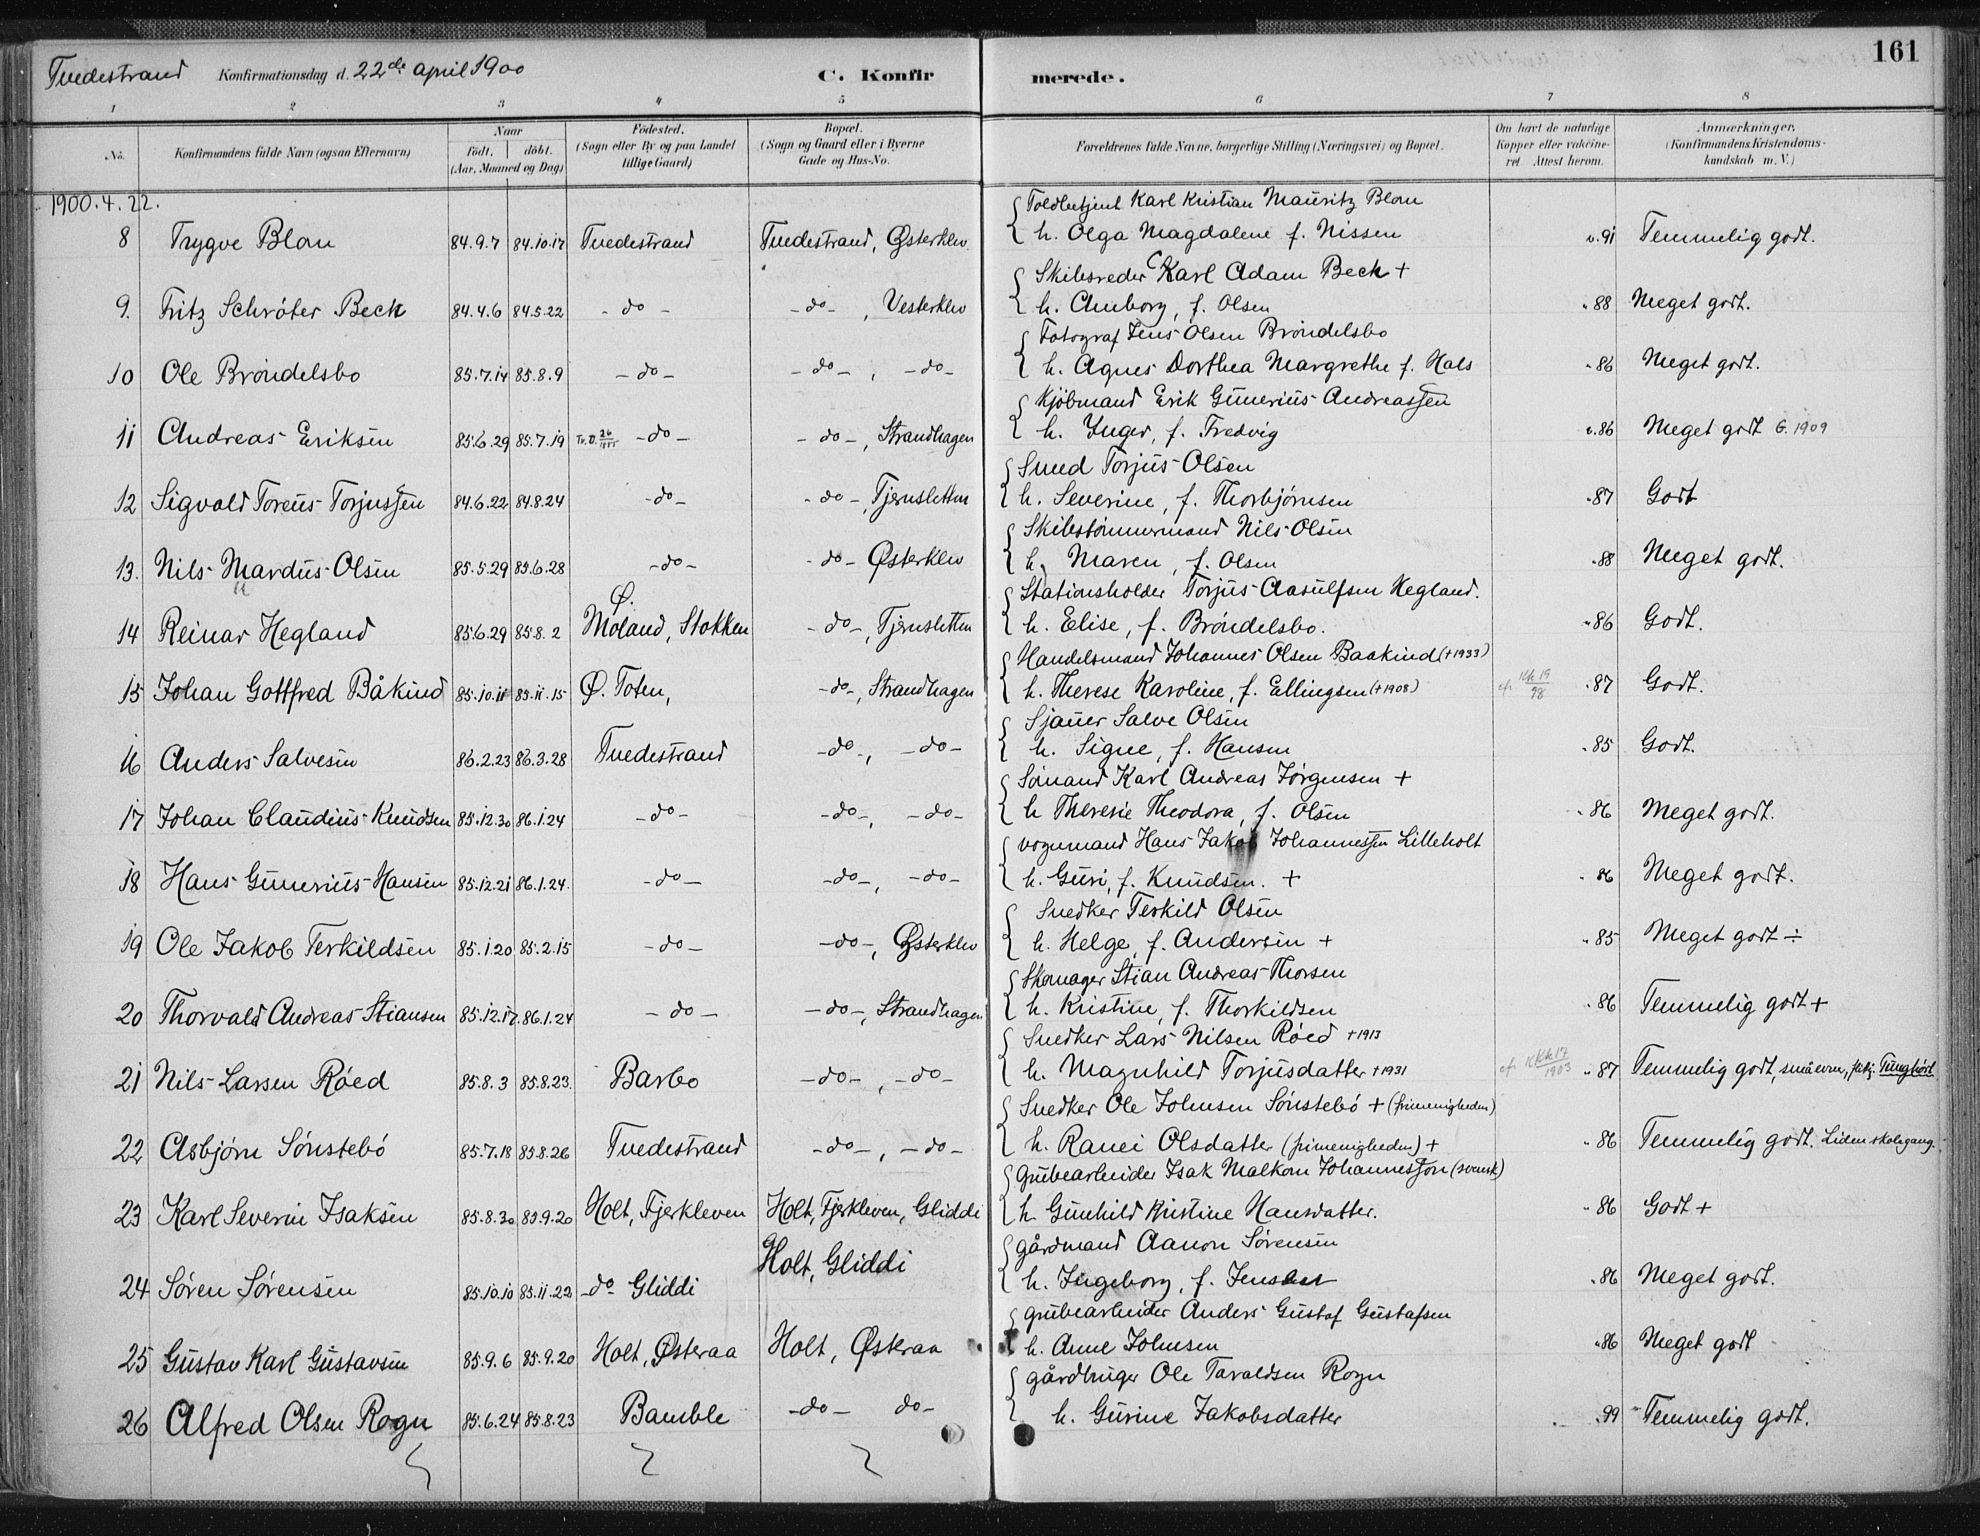 Tvedestrand Konfirmationsdag d. 22de april 1900 C. Konfirmerede. 161
1 2 3 4 5 6 7 8
No. Konfirmandens fulde Navn (ogsaa Efternavn) Naar født. døbt. (Aar, Maaned og Dag) Fødested. (Sogn eller By og paa Landet tillige Gaard) Bopæl. (Sogn og Gaard eller i Byerne Gade og Hus-No. Forældrenes fulde Navne, borgerlige Stilling (Næringsvei) og Bopæl. Om havt de naturlige Kopper eller vakcineret. Attest herom. Anmærkninger. (Konfirmandens Kristendomskundskab m. V.)
1900.4.22.
Toldbetjent Karl Kristian Mauritz Blom
8 Trygve Blom 84.9.7 84.10.17 Tvedestrand Tvedestrand, Østerklev h. Olga Magdalene f. Nissen v. 91 Temmelig godt.
Skibsreder Karl Adam Beck +
9. Fritz Schrøter Beck 84.4.6 84.5.22 - do - - do - , Vesterklev h. Amborg, f. Olsen " 88 Meget godt.
Fotograf Jens Olsen Brøndelsbo
10 Ole Brøndelsbo 85.7.14 85.8.9 - do - - do - , - do - h. Agnes Dorthea Margrethe f. Hals " 86 Meget godt.
Kjøbmand Erik Gunerius Andreassen
11 Andreas Eriksen 85.6.29 85.7.19 - do - - do - , Strandhagen h. Inger, f. Fredvig v. 86 Meget godt G. 1909
Smed Torjus Olsen
12 Sigvald Toreus Torjussen 84.6.22 84.8.24 - do - - do - , Tjernsletten h. Severine, f. Thorbjørnsen " 87 Godt
Skibstømmermand Nils Olsen
13. Nils Mardus Olsen 85.5.29 85.6.28 - do - - do - Østerklev h. Maren, f. Olsen " 88 Meget godt.
Stationsholder Torjus Aasulfsen Hegland.
14 Reinar Hegland 85.6.29 85.8.2 Ø. Moland, Stokken - do - , Tjernsletten h. Elise, f. Brøndelsbo. " 86 Godt.
Handelsmand Johannes Olsen Baakind (+1933)
15 Johan Gottfred Båkind 85.10.11 85.11.15 Ø. Toten, - do - , Strandhagen h. Therese Karoline, f. Ellingsen (+1908) " 87 Godt.
Sjauer Salve Olsen
16 Anders Salvesen 86.2.23 86.3.28 Tvedestrand - do - , - do - h. Signe, f. Hansen " 85 Godt.
Sømand Karl Andreas Jørgensen +
17 Johan Claudius Knudsen 85.12.30 86.1.24 - do - - do - , - do - h Theresie Theodora, f. Olsen " 86 Meget godt.
Vognmand Hans Jakob Johannessen Lilleholt
18 Hans Gunerius Hansen 85.12.21 86.1.24. - do - - do - , - do - h. Guri, f. Knudsen. + " 86 Meget godt.
Snedker Terkild Olsen
19 Ole Jakob Terkildsen 85.1.20 85.2.15 - do - - do - , Østerklev h. Helge, f. Andersen + " 85 Meget godt ÷
Skomager Stian Andreas Thorsen
20 Thorvald Andreas Stiansen 85.12.17. 86.1.24 - do - - do - , Strandhagen h. Kristine, f. Thorkildsen " 86 Temmelig godt +
Snedker Lars Nilsen Røed +1913
21 Nils Larsen Røed 85.8.3 85.8.23. Barbo - do - , - do - h. Magnhild Torjusdatter +1931 " 87 Temmelig godt, små evner, Tunghørt
Snedker Ole Johnsen Sønstebø + (frimenigheden)
22 Asbjørn Sønstebø 85.7.18 85.8.26 Tvedestrand - do - , - do - h. Ranei Olsdatter (frimenigheden) + " 86 Temmelig godt. Liden skolegang.
Grubearbeider Isak Malkom Johannesson (svensk)
23 Karl Severin Isaksen 85.8.30 85.9.20 Holt, Fjerkleven Holt, Fjerkleven, Gliddi h Gunhild Kristine Hansdatter. " 86 Godt +
gårdmand Aanon Sørensen
24 Søren Sørensen 85.10.10 85.11.22 do Gliddi Holt, Gliddi h. Ingeborg, f. Jens " 86 Meget godt.
grubearbeider Anders Gustaf Gustafsen
25 Gustav Karl Gustavsen 85.9.6 85.9.20 Holt, Østeraa Holt, Østeraa h. Anne Johnsen " 86 Meget godt
gårdbruger Ole Tavaldsen Rogn
26 Alfred Olsen Rogn 85.6.24 85.8.23 Bamble - do - do - h. Gurine Jakobsdatter " 99 Temmelig godt.